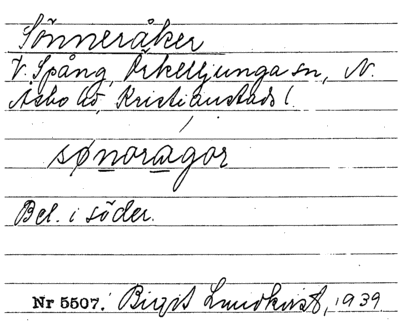 Sönneråker
V. Spång, Örkelljunga sn, N.
Åsbo hd, Kristianstads l.
sønoragor
Bel. i söder.
Nr 5507. Birgit Lundkvist, 1939